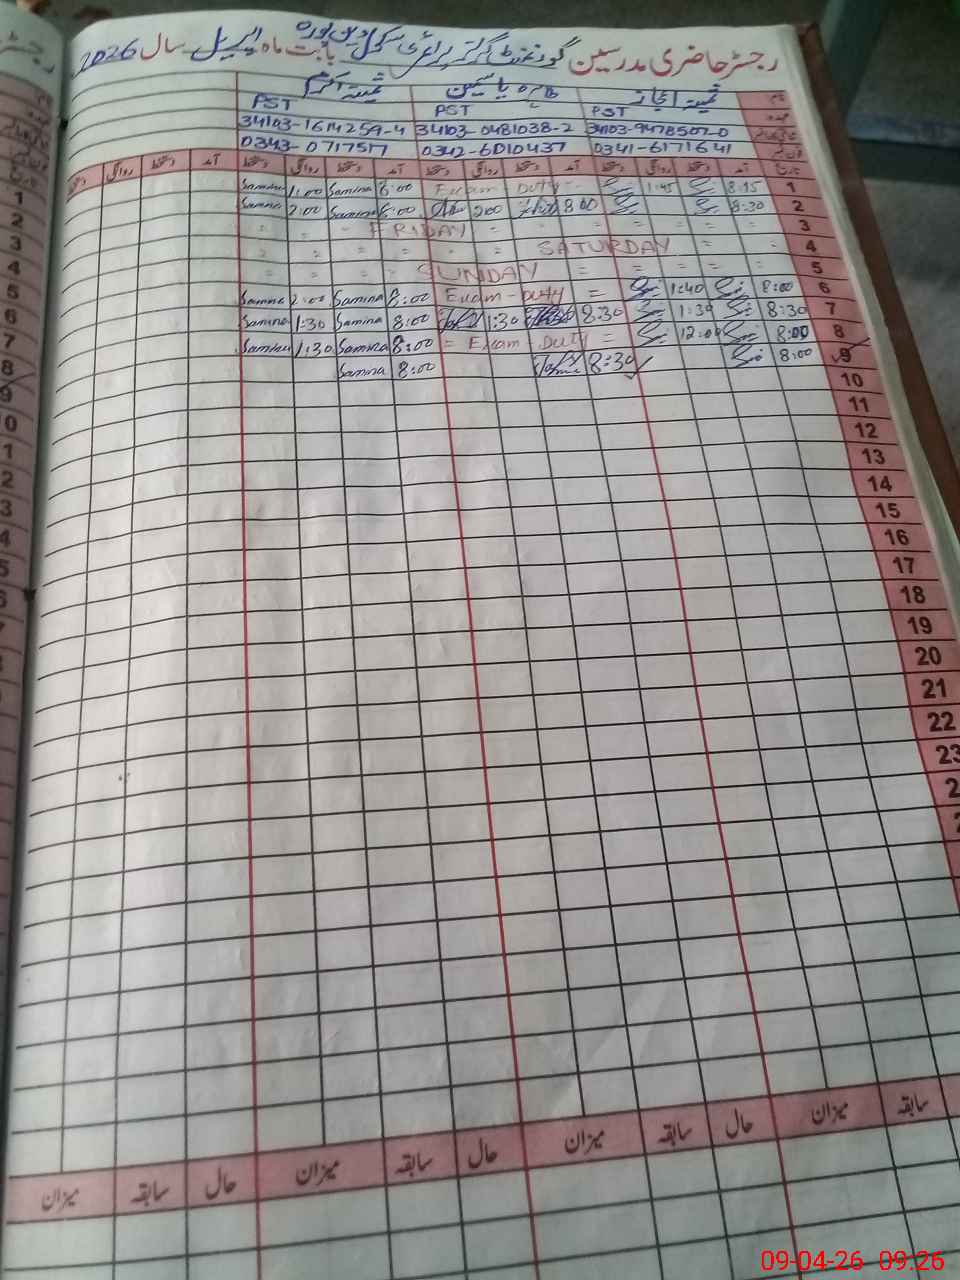 رجسٹر حاضری مدرسین گورنمنٹ گرلز پرائمری سکول دین پورہ بابت ماہ اپریل سال 2026
نام ثمینہ اعجاز طاہرہ یاسمین ثمینہ اکرم
عہدہ PST PST PST
34103-9478507-0 34103-0481038-2 34103-1614259-4
0341-6171641 0342-6010437 0343-0717517
تاریخ آمد دستخط روانگی دستخط آمد دستخط روانگی دستخط آمد دستخط روانگی دستخط آمد دستخط روانگی دستخط
1 8:15 1:45 Exam - Duty - 8:00 Samina 1:00 Samina
2 8:30 8:00 2:00 8:00 Samina 2:00 Samina
3 FRIDAY
4 SATURDAY
5 SUNDAY
6 8:00 1:40 = Exam - Duty 8:00 Samina 2:00 Samina
7 8:30 1:30 8:30 1:30 8:00 Samina 1:30 Samina
8 8:00 12:00 = Exam - Duty = 8:00 Samina 1:30 Samina
9 8:00 8:30 8:00 Samina
10
11
12
13
14
15
16
17
18
19
20
21
22
23
سابقہ میزان حال سابقہ میزان حال سابقہ میزان حال سابقہ میزان
09-04-26 09:26